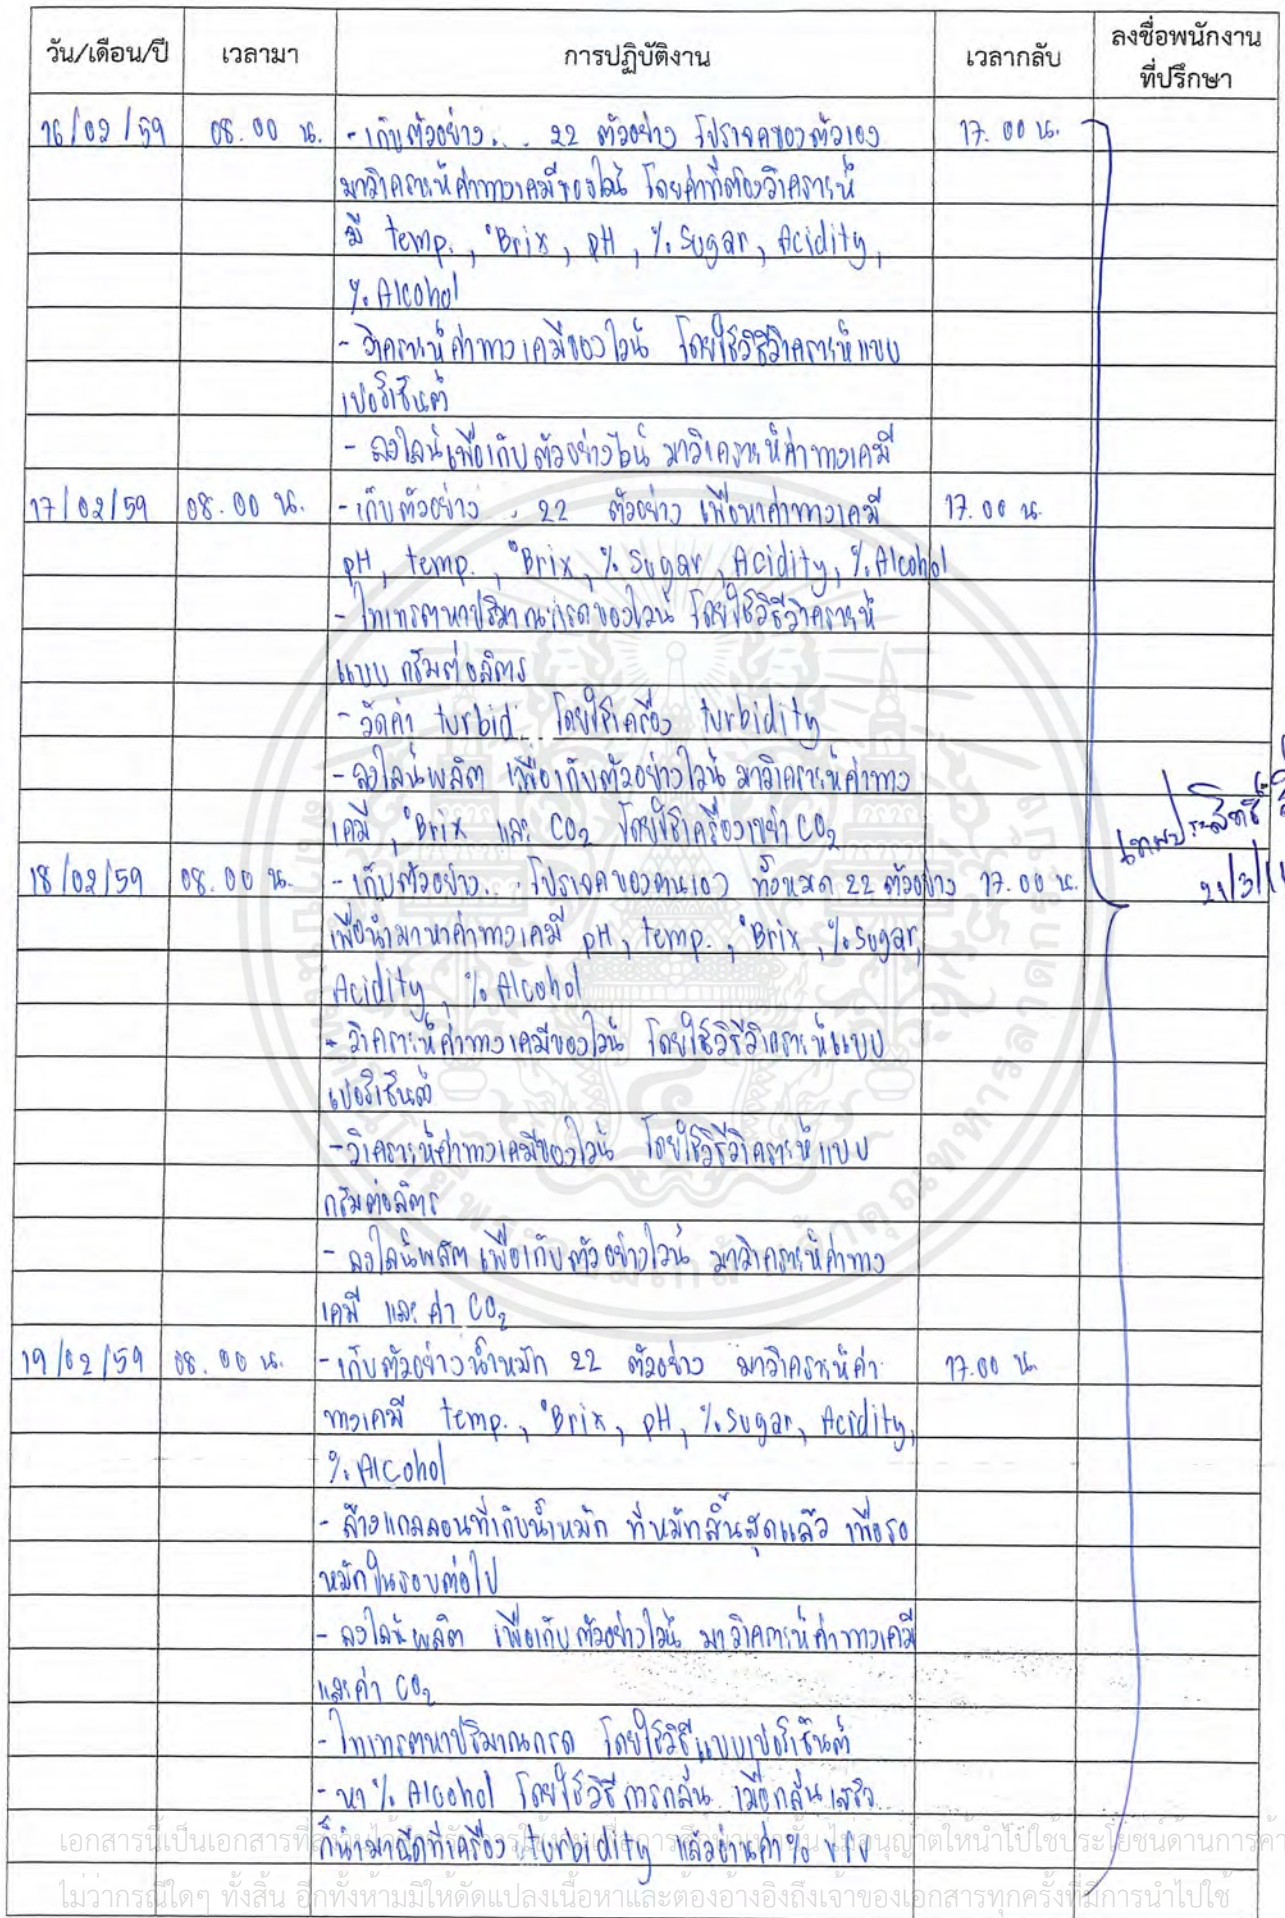 วัน/เดือน/ปี เวลามา การปฏิบัติงาน เวลากลับ ลงชื่อพนักงาน
ที่ปรึกษา
16/02/59 08.00 น. - เก็บตัวอย่าง... 22 ตัวอย่าง โปรเจคของตัวเอง 17.00 น.
มาวิเคราะห์ค่าทางเคมีของไวน์ โดยค่าที่ต้องวิเคราะห์
มี temp., °Brix, pH, % Sugar, Acidity,
% Alcohol
- วิเคราะห์ค่าทางเคมีของไวน์ โดยใช้วิธีวิเคราะห์แบบ
เปอร์เซ็นต์
- ลงไลน์เพื่อเก็บตัวอย่างไวน์ มาวิเคราะห์ค่าทางเคมี
17/02/59 08.00 น. - เก็บตัวอย่าง .. 22 ตัวอย่าง เพื่อหาค่าทางเคมี 17.00 น.
pH, temp., °Brix, % Sugar, Acidity, % Alcohol
- ไทเทรตหาปริมาณกรดของไวน์ โดยใช้วิธีวิเคราะห์
แบบ กรัมต่อลิตร
- วัดค่า turbid. โดยใช้เครื่อง turbidity
- ลงไลน์ผลิต เพื่อเก็บตัวอย่างไวน์ มาวิเคราะห์ค่าทาง
เคมี, °Brix และ CO₂ โดยใช้เครื่องเขย่า CO₂
18/02/59 08.00 น. - เก็บตัวอย่าง... โปรเจคของตนเอง ทั้งหมด 22 ตัวอย่าง 17.00 น.
21/3/
เพื่อนำมาหาค่าทางเคมี pH, temp., °Brix, % Sugar,
Acidity, % Alcohol
- วิเคราะห์ค่าทางเคมีของไวน์ โดยใช้วิธีวิเคราะห์แบบ
เปอร์เซ็นต์
- วิเคราะห์ค่าทางเคมีของไวน์ โดยใช้วิธีวิเคราะห์แบบ
กรัมต่อลิตร
- ลงไลน์ผลิต เพื่อเก็บตัวอย่างไวน์ มาวิเคราะห์ค่าทาง
เคมี และ ค่า CO₂
19/02/59 08.00 น. - เก็บตัวอย่างน้ำหมัก 22 ตัวอย่าง มาวิเคราะห์ค่า 17.00 น.
ทางเคมี temp., °Brix, pH, % Sugar, Acidity,
% Alcohol
- ล้างแกลลอนที่เก็บน้ำหมัก ที่หมักสิ้นสุดแล้ว เพื่อรอ
หมักในรอบต่อไป
- ลงไลน์ผลิต เพื่อเก็บตัวอย่างไวน์ มาวิเคราะห์ค่าทางเคมี
และค่า CO₂
- ไทเทรตหาปริมาณกรด โดยใช้วิธีแบบเปอร์เซ็นต์
- หา % Alcohol โดยใช้วิธีการกลั่น เมื่อกลั่นเสร็จ
ก็นำมาฉีดที่เครื่อง turbidity แล้วอ่านค่า % v/v
เอกสารนี้เป็นเอกสารที่ อนุญาตให้นำไปใช้ประโยชน์ด้านการค้า
ไม่ว่ากรณีใดๆ ทั้งสิ้น อีกทั้งห้ามมิให้ดัดแปลงเนื้อหาและต้องอ้างอิงถึงเจ้าของเอกสารทุกครั้งที่มีการนำไปใช้